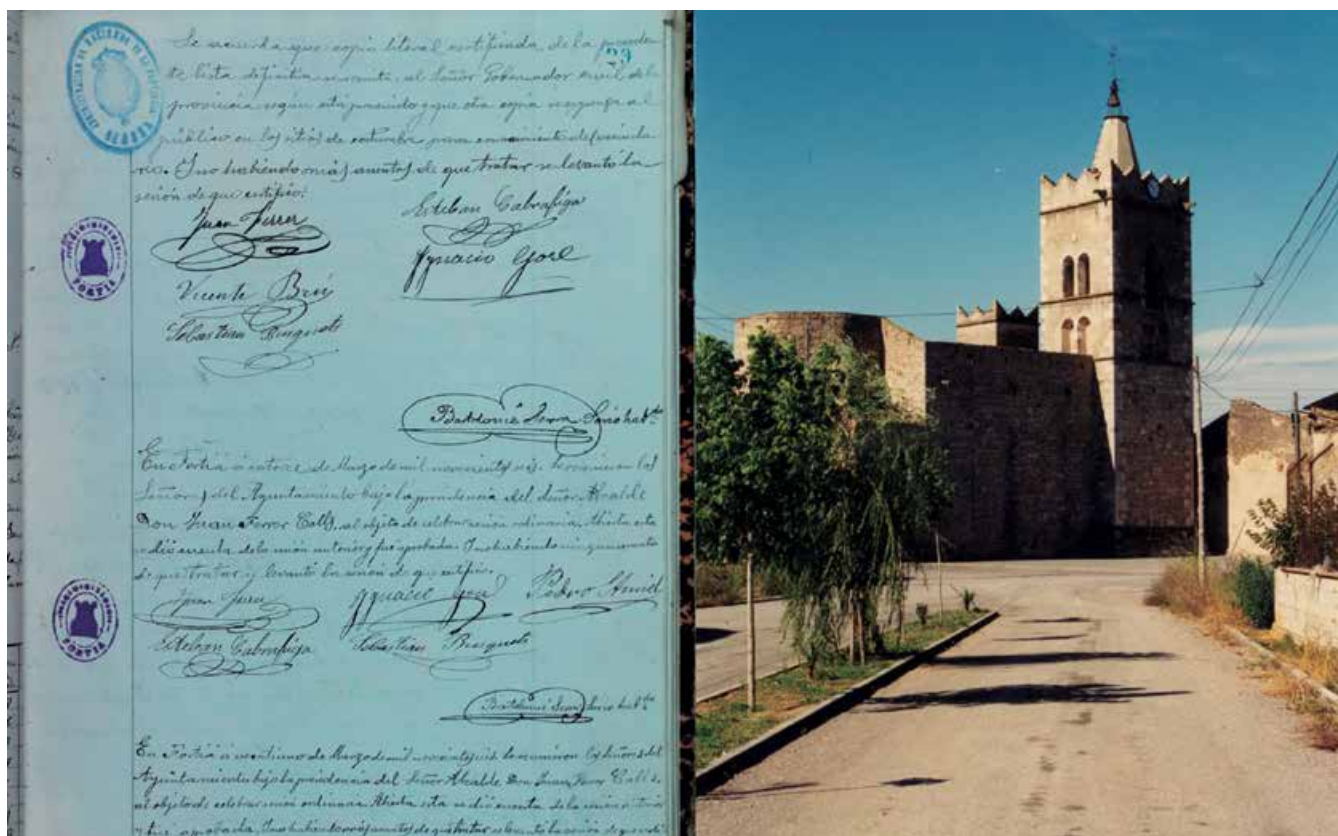 23
Se acuerda que copia literal certificada de la preceden-
te lista definitiva se remita al Señor Gobernador civil de la
provincia según está prevenido y que otra copia se esponga al
público en los sitios de costumbre para conocimiento del vecinda-
rio. Y no habiendo más asuntos de que tratar se levantó la
sesión de que certifico.
Juan Ferrer
Esteban Cabrafiga
Ignacio Goré
Vicente Brú
Sebastian Busquets
FORTIÁ
Bartolomé Serra Srio habdo
En Fortiá á catorce de Marzo de mil novecientos seis se reunieron los
Señores del Ayuntamiento bajo la presidencia del Señor Alcalde
Don Juan Ferrer Colls, al objeto de celebrar sesión ordinaria. Abierta esta
se dió cuenta de la sesión anterior y fué aprobada. Y no habiendo ningun asunto
de que tratar se levantó la sesión de que certifico.
Juan Ferrer
Ignacio Goré
Pedro
Esteban Cabrafiga
Sebastian Busquets
FORTIÁ
Bartolomé Serra Srio habdo
En Fortiá á veintiuno de Marzo de mil novecientos seis se reunieron los Señores del
Ayuntamiento bajo la presidencia del Señor Alcalde Don Juan Ferrer Colls,
al objeto de celebrar sesión ordinaria. Abierta esta se dió cuenta de la sesión anterior
y fué aprobada. Y no habiendo más asuntos de que tratar se levantó la sesión de que